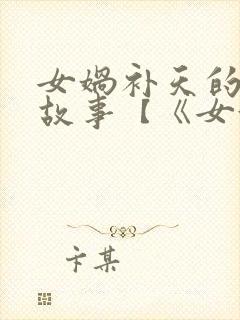 女娲补天的
故事【《女
卞某